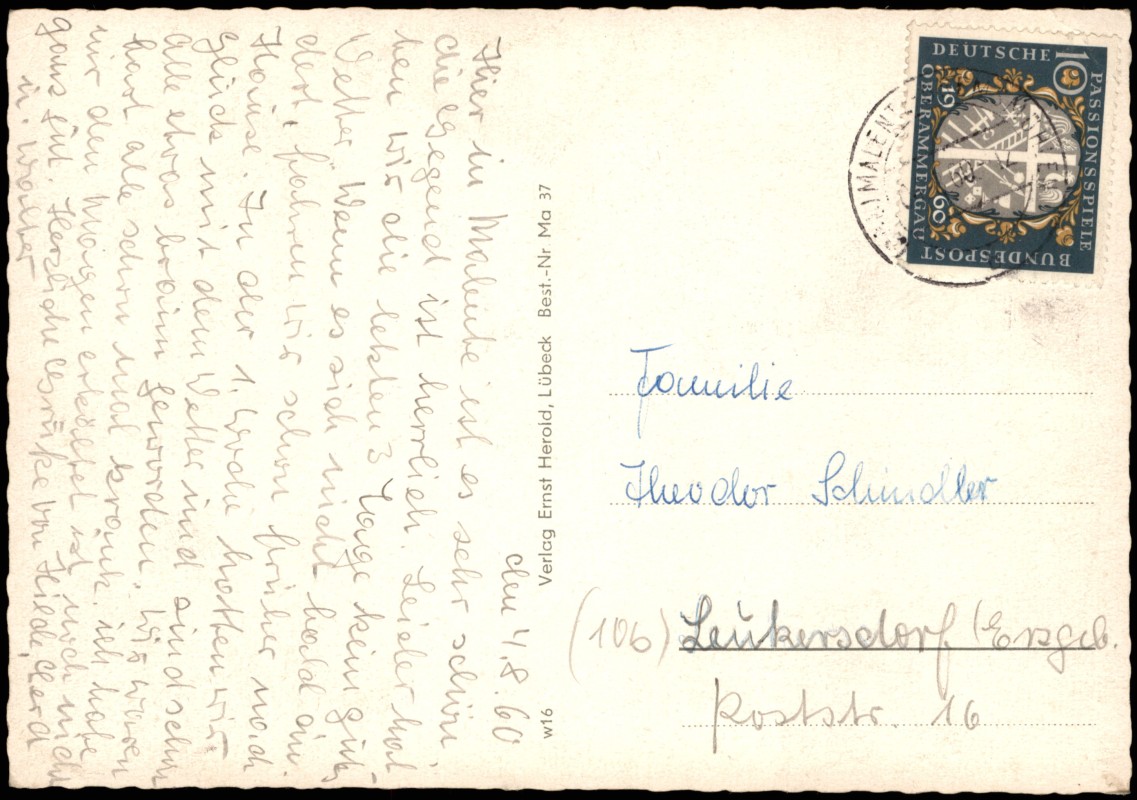 den 4.8.60
Hier in Malente ist es sehr schön
die Gegend ist herrlich. Leider hat
ten wir die letzten 3 Tage kein gutes
Wetter. Wenn es sich nicht bald än
dert, fahren wir schon früher nach
Hause. In der 1. Woche hatten wir
Glück mit dem Wetter und sind schon
alle etwas braun geworden. Wir waren
hast alle schon mal krank. ich habe
mir den Magen erkältet ist noch nicht
ganz gut. Herzliche Grüße von Hilde, Gerd
u. Walter
Verlag Ernst Herold, Lübeck Best.-Nr Ma 37
w16
DEUTSCHE
BUNDESPOST
10
PASSIONSSPIELE
OBERAMMERGAU
1960
MALENTE
Familie
Theodor Schindler
(10b) Leukersdorf (Erzgeb.
Poststr. 16